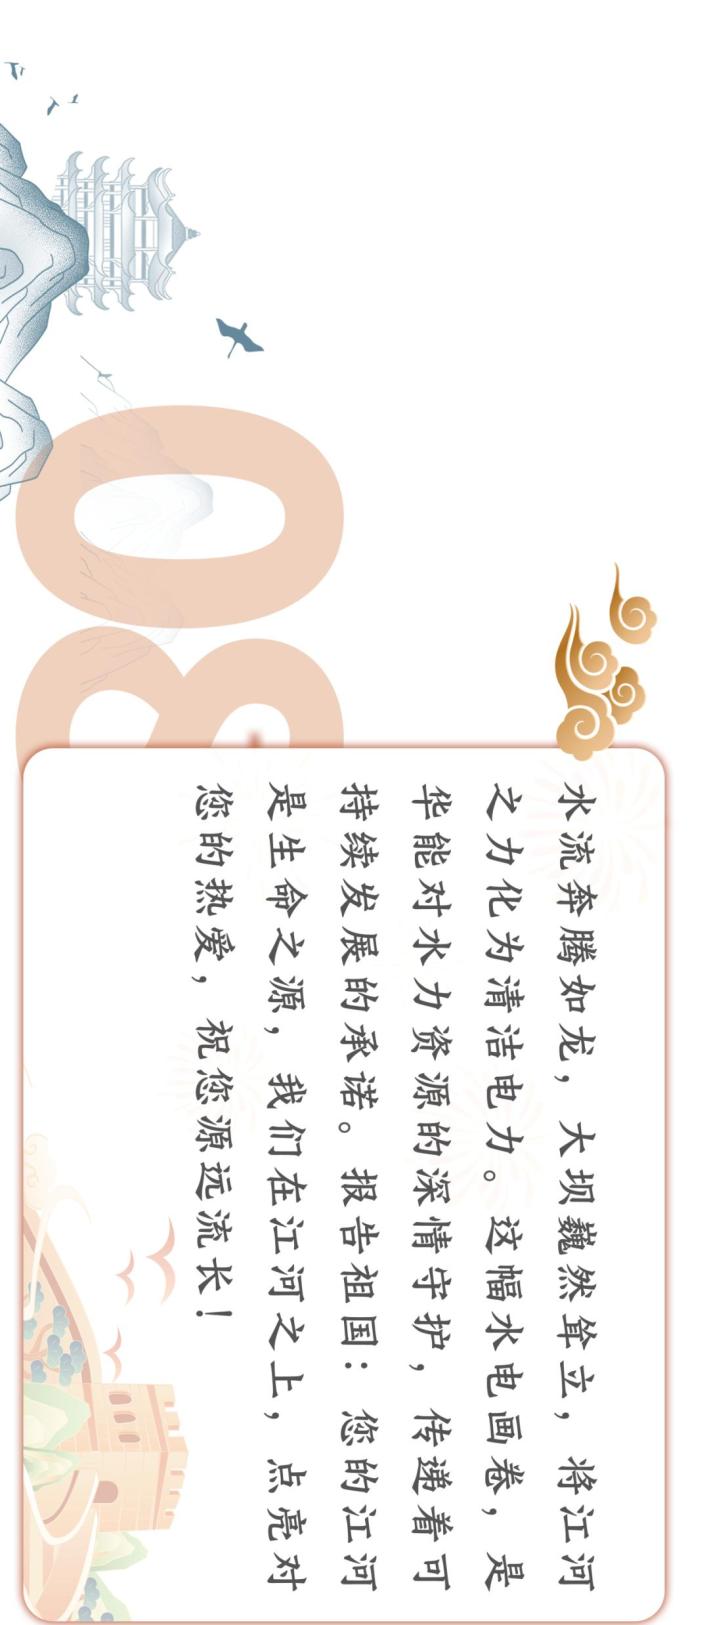 水流奔腾如龙，大坝巍然耸立，将江河
之力化为清洁电力。这幅水电画卷，是
华能对水力资源的深情守护，传递着可
持续发展的承诺。报告祖国：您的江河
是生命之源，我们在江河之上，点亮对
您的热爱，祝您源远流长！
80